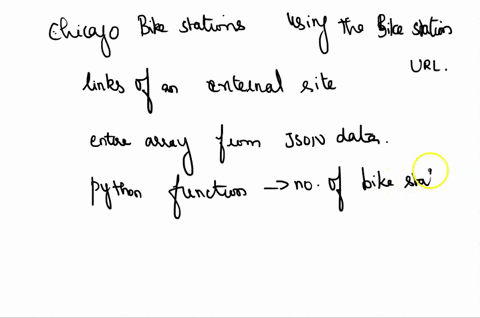 Chicago Bike stations using the Bike station
URL.
links of an external site
entire array from JSON data.
python function → no. of bike sta